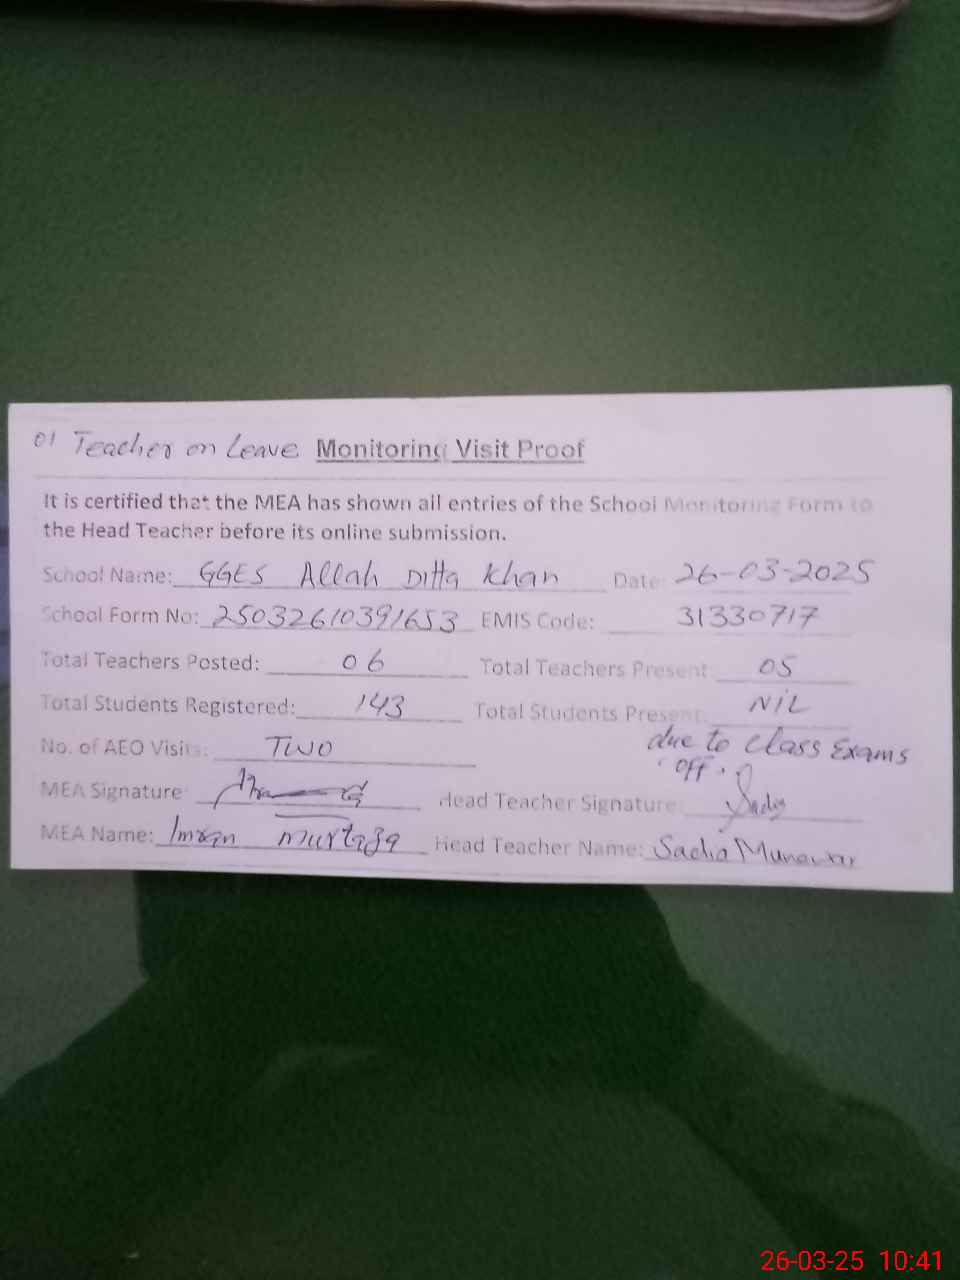 01 Teacher on Leave Monitoring Visit Proof
It is certified that the MEA has shown all entries of the School Monitoring Form to
the Head Teacher before its online submission.
School Name: GGES Allah Ditta Khan Date: 26-03-2025
School Form No: 25032610391653 EMIS Code: 31330717
Total Teachers Posted: 06 Total Teachers Present: 05
Total Students Registered: 143 Total Students Present: NIL
No. of AEO Visits: TWO due to Class Exams
off.
MEA Signature Head Teacher Signature:
MEA Name: Imran Murtaza Head Teacher Name: Sadia Munawar
26-03-25 10:41